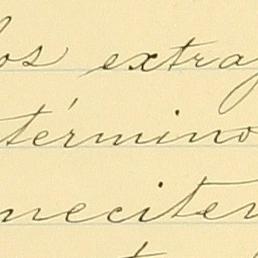 los extra
término
neciten